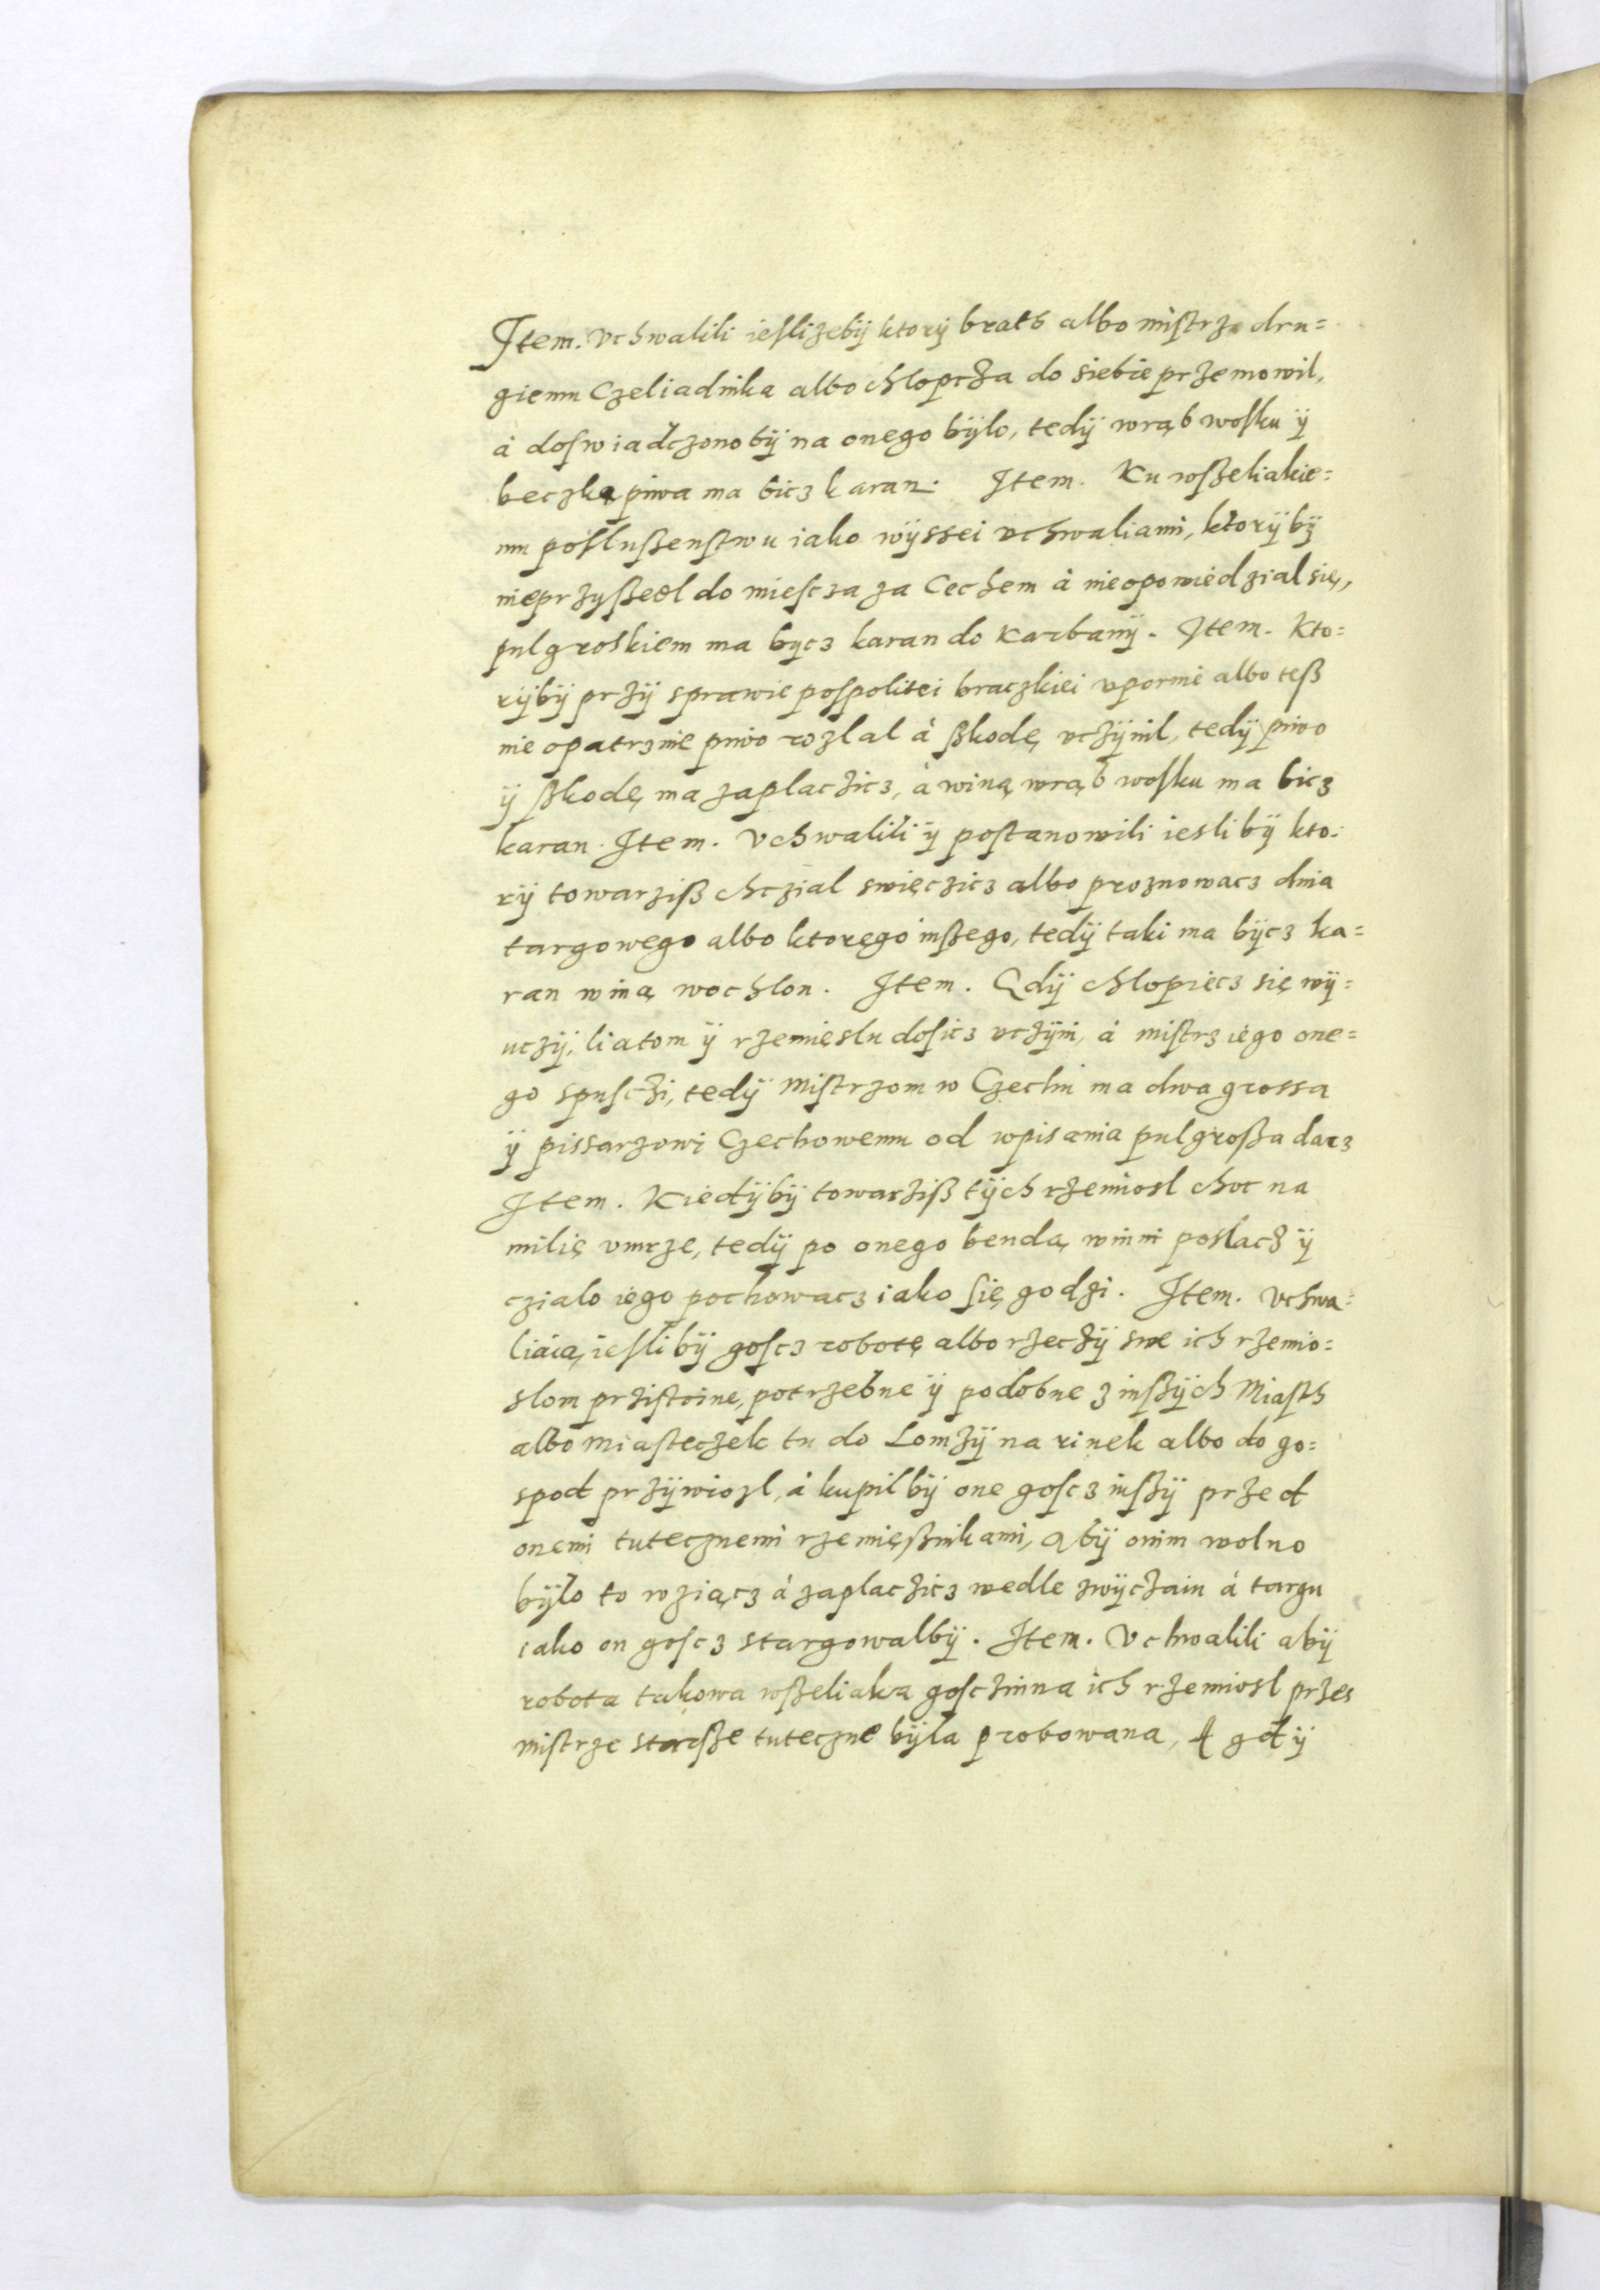 Item. Vchwalili ieslizebÿ ktorÿ brath albo mistrz dru=
giemu Czeliadnika albo chlopcża do siebie przemowil,
á doswiadczono bÿ na onego bÿlo, tedÿ wrąb wosku ÿ
beczką piwa ma bicz karan. Item. Ku wßeliakie=
mu posłußenstwu iako wÿssei vchwaliami, ktorÿ bÿ
nieprzyßedl do miescza za Cechem á nieopowiedzial się,
pulgroskiem ma bÿcz karan do Karbanÿ. Item. Kto=
rÿbÿ przÿ sprawie pospolitei braczkiei vpornie albo teß
nie opatrznie piwo rozlal á ßkodę vczÿnil, tedÿ piwo
ÿ ßkodę ma zaplaczicz, á winą wrąb wosku ma bicz
karan. Item. Vchwalili ÿ postanowili iesli bÿ kto=
rÿ towarziß chczial swięczicz albo proznowacz dnia
targowego albo ktorego inßego, tedÿ taki ma bÿcz ka=
ran winą wochlon. Item. Gdÿ chlopiecz się wÿ=
uczÿ, liatom ÿ rzemięslu dosicz vczÿni, á mistrz iego one=
go spusczi, tedÿ Mistrzom w Czechu ma dwa grossa
ÿ pissarzowi Czechowemu od wpisania pulgroßa dacz
Item. Kiedÿbÿ towarziß tÿch rzemiosl choc na
milię vmrze, tedÿ po onego bendą winni poslacz ÿ
czialo iego pochowacz iako się godzi. Item. Vchwa=
liáią, iesli bÿ goscz robotę albo rzeczÿ swe ich rzemio=
slom przistoine, potrzebne ÿ podobne z inßÿch Miasth
albo Miasteczek tu do Lomzÿ na rinek albo do go=
spod przÿwiozl, á kupil bÿ one goscz inßÿ przed
onemi tutecznemi rzemięßnikami, Abÿ onim wolno
bÿlo to wziącz á zaplaczicz wedle zwÿczaiu á targu
iako on goscz stargowalbÿ. Item. Vchwalili abÿ
robota takowa wßeliaka gosczinna ich rzemiosl przes
mistrze starße tuteczne bÿla probowana, A gdÿ